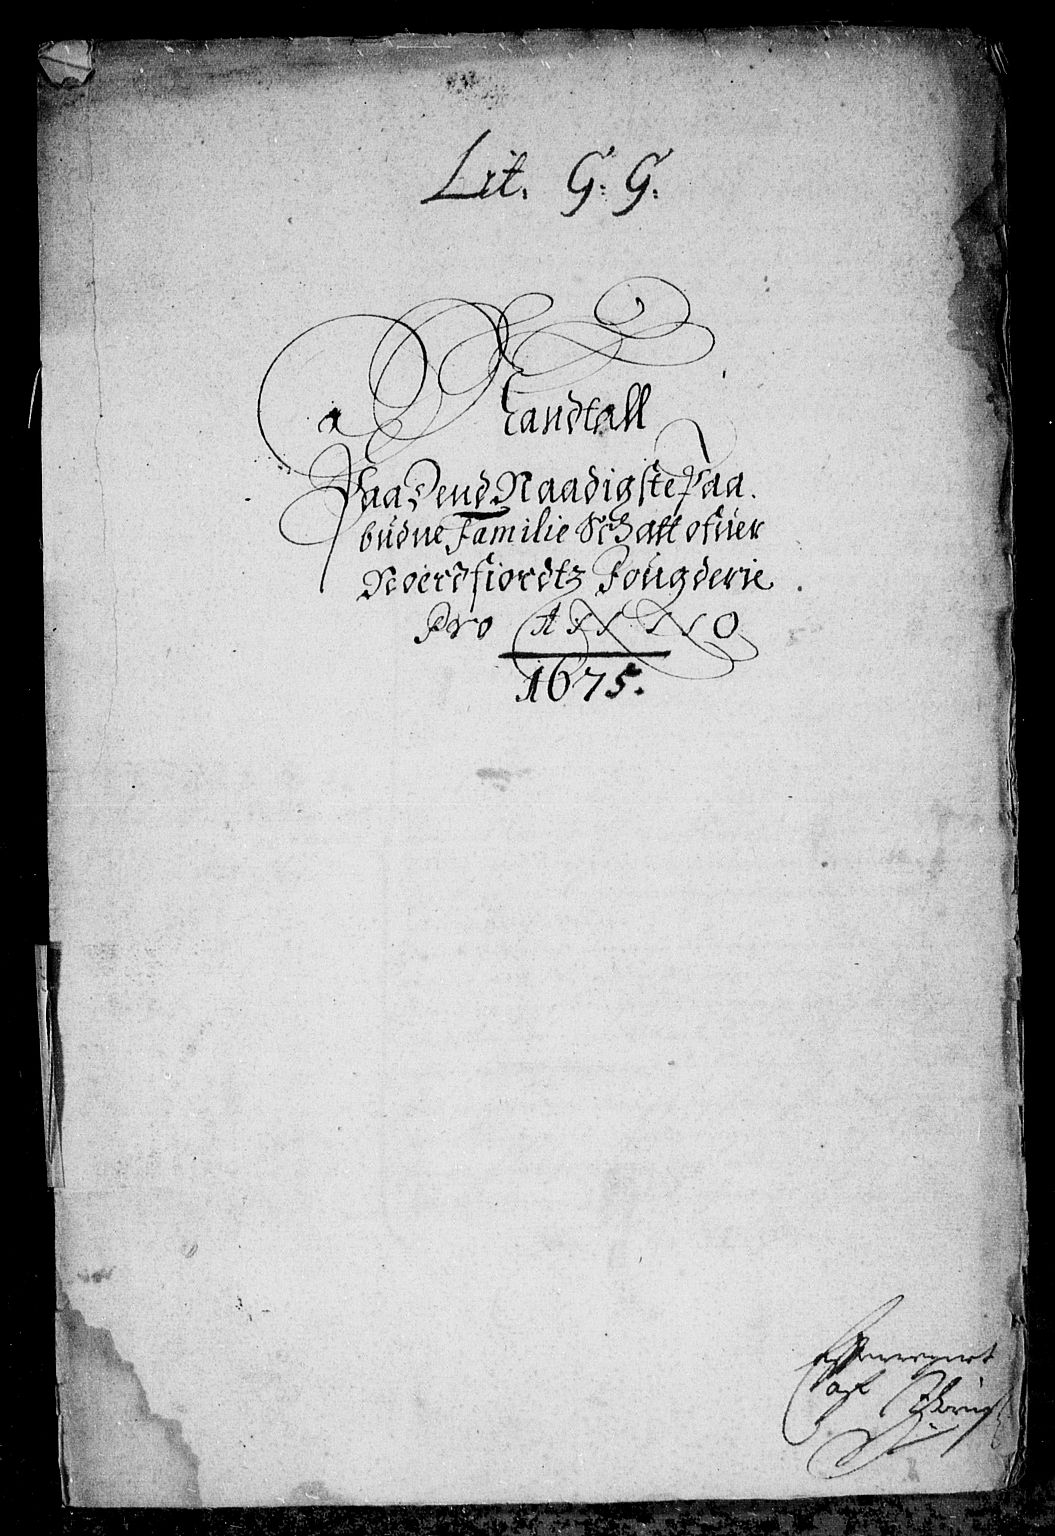 Lit. G: G:
Mandtall
Paa Dend Naadigste Paa
budne Familie Schatt ofuer
Noerdfiordtz Fougderie
Pro ANNO
1675.
af